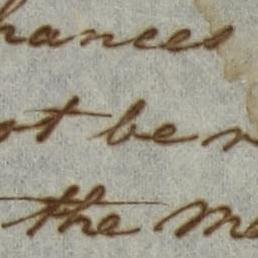 hances
ot be n
the me